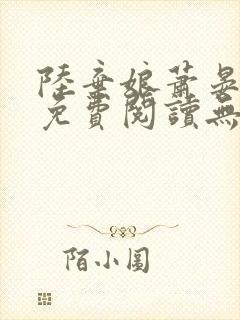 陸棄娘蕭晏
免費閱讀無
陌小圓